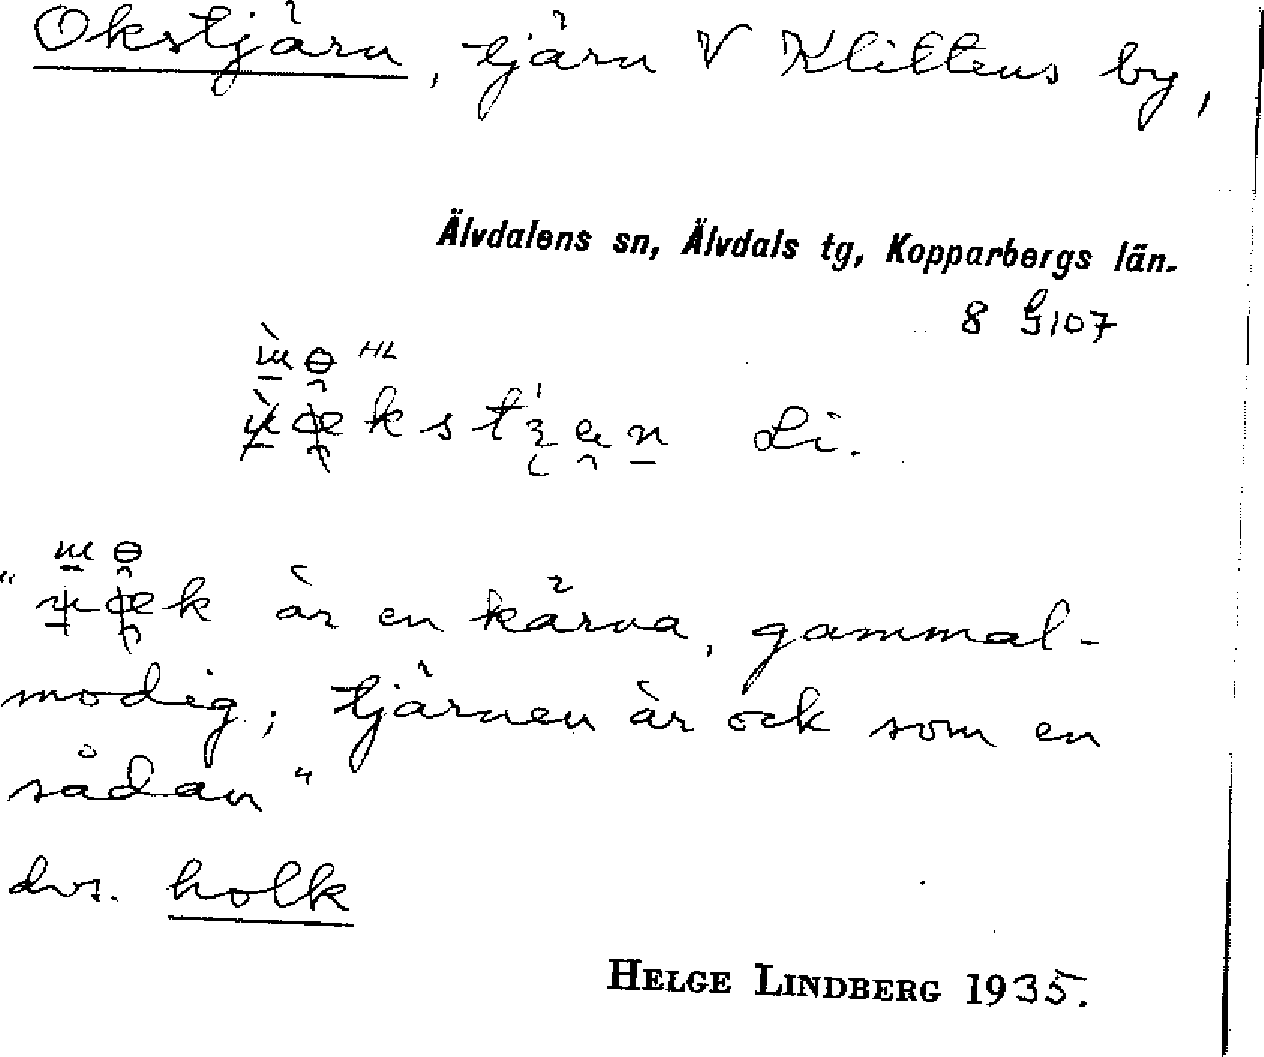 Okstjärn, tjärn V Klittens by,
Älvdalens sn, Älvdals tg, Kopparbergs län.
8 G107
HL
Li.
är en kärva, gammal-
modig; tjärnen är ock som en
sådan"
dvs. holk
HELGE LINDBERG 1935.